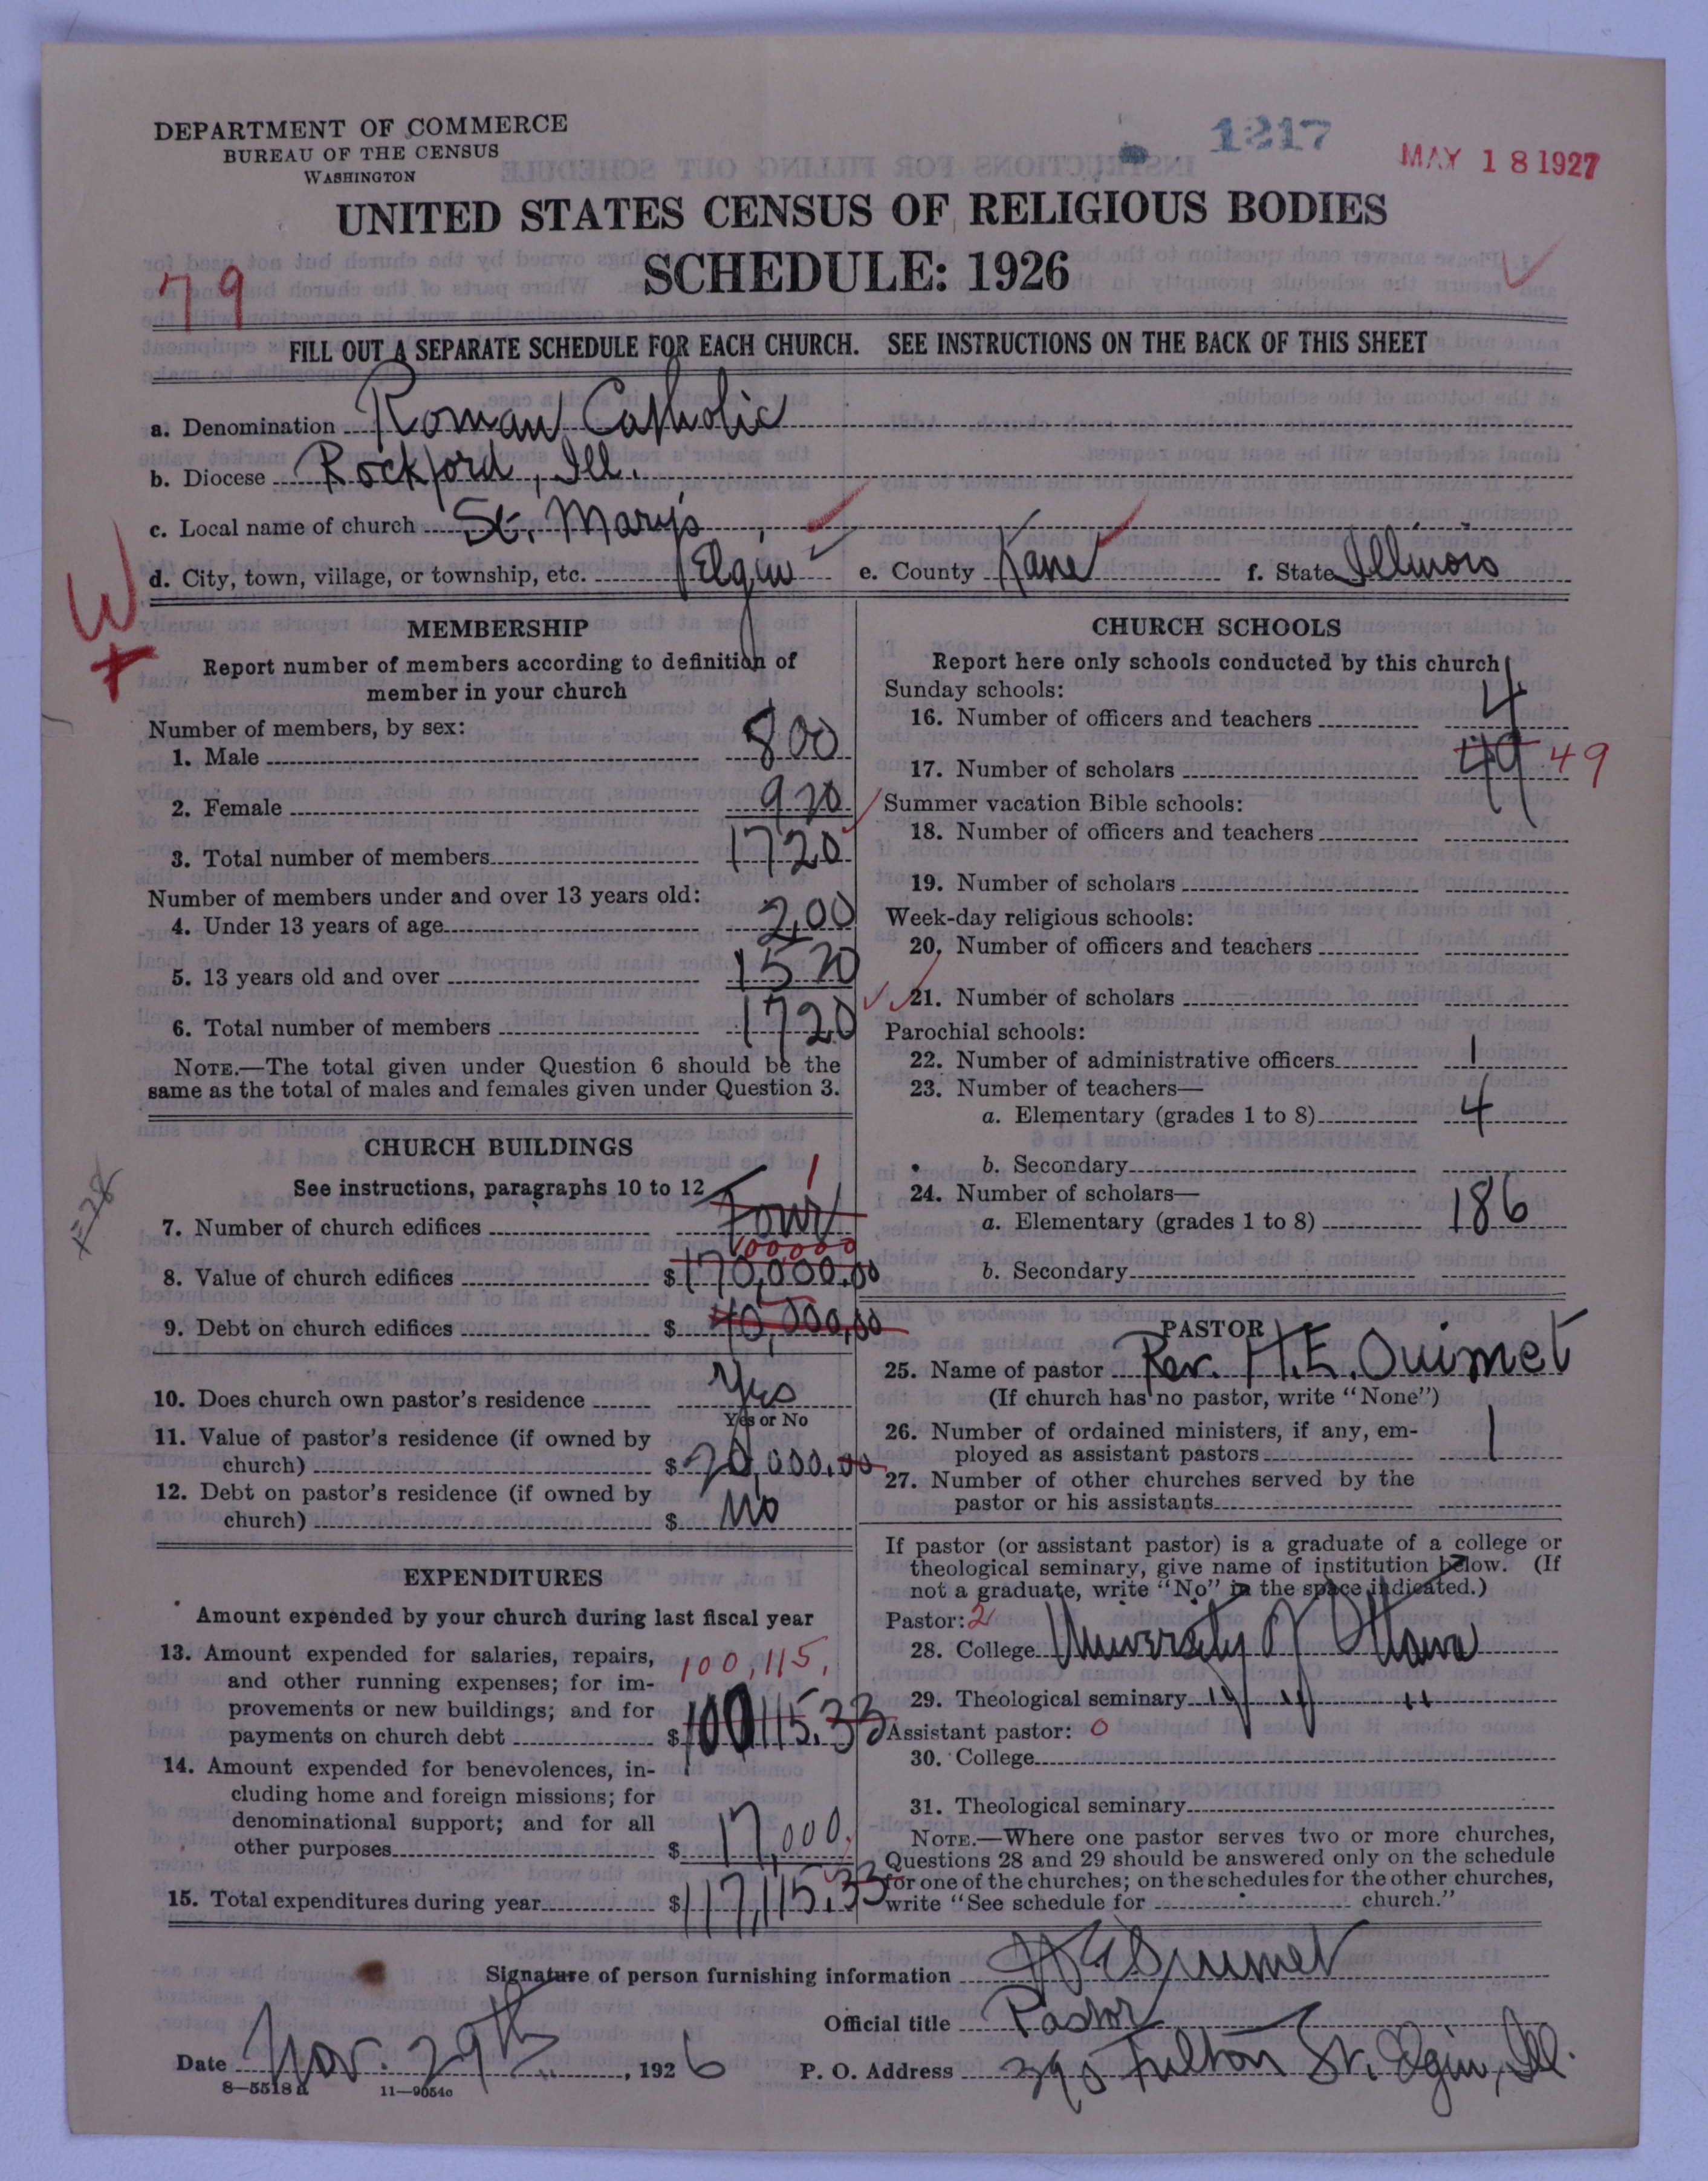 DEPARTMENT OF COMMERCE
BUREAU OF THE CENSUS
WASHINGTON
1217
MAY 18 1927
UNITED STATES CENSUS OF RELIGIOUS BODIES
SCHEDULE: 1926
79
FILL OUT A SEPARATE SCHEDULE FOR EACH CHURCH. SEE INSTRUCTIONS ON THE BACK OF THIS SHEET
a. Denomination Roman Catholic
b. Diocese Rockford, Ill.
c. Local name of church St. Mary's
d. City, town, village, or township, etc. Elgin e. County Kane f. State Illinois
W
MEMBERSHIP
Report number of members according to definition of
member in your church
Number of members, by sex:
1. Male 800
2. Female 920
3. Total number of members 1720
Number of members under and over 13 years old:
4. Under 13 years of age 200
5. 13 years old and over 1520
6. Total number of members 1720
NOTE.—The total given under Question 6 should be the
same as the total of males and females given under Question 3.
CHURCH BUILDINGS
See instructions, paragraphs 10 to 12
1
7. Number of church edifices Four
100,000
8. Value of church edifices $170,000.00
9. Debt on church edifices $40,000.00
10. Does church own pastor's residence Yes
Yes or No
11. Value of pastor's residence (if owned by
church) $20,000.00
12. Debt on pastor's residence (if owned by
church) $ No
EXPENDITURES
Amount expended by your church during last fiscal year
13. Amount expended for salaries, repairs,
and other running expenses; for im-
provements or new buildings; and for
payments on church debt $100115.33
100,115.
14. Amount expended for benevolences, in-
cluding home and foreign missions; for
denominational support; and for all
other purposes $17,000.
15. Total expenditures during year $117,115.33
CHURCH SCHOOLS
Report here only schools conducted by this church
Sunday schools:
16. Number of officers and teachers 4
17. Number of scholars 49 49
Summer vacation Bible schools:
18. Number of officers and teachers
19. Number of scholars
Week-day religious schools:
20. Number of officers and teachers
21. Number of scholars
Parochial schools:
22. Number of administrative officers 1
23. Number of teachers—
a. Elementary (grades 1 to 8) 4
b. Secondary
24. Number of scholars—
a. Elementary (grades 1 to 8) 186
b. Secondary
PASTOR
25. Name of pastor Rev. H.E. Ouimet
(If church has no pastor, write "None")
26. Number of ordained ministers, if any, em-
ployed as assistant pastors 1
27. Number of other churches served by the
pastor or his assistants
If pastor (or assistant pastor) is a graduate of a college or
theological seminary, give name of institution below. (If
not a graduate, write "No" in the space indicated.)
Pastor: 2
28. College University of Ottawa
29. Theological seminary " " "
Assistant pastor: 0
30. College
31. Theological seminary
NOTE.—Where one pastor serves two or more churches,
Questions 28 and 29 should be answered only on the schedule
for one of the churches; on the schedules for the other churches,
write "See schedule for church."
Signature of person furnishing information H E Ouimet
Official title Pastor
Date Nov. 29th, 1926 P. O. Address Fulton St. Elgin, Ill.
8—5518a 11—9054c